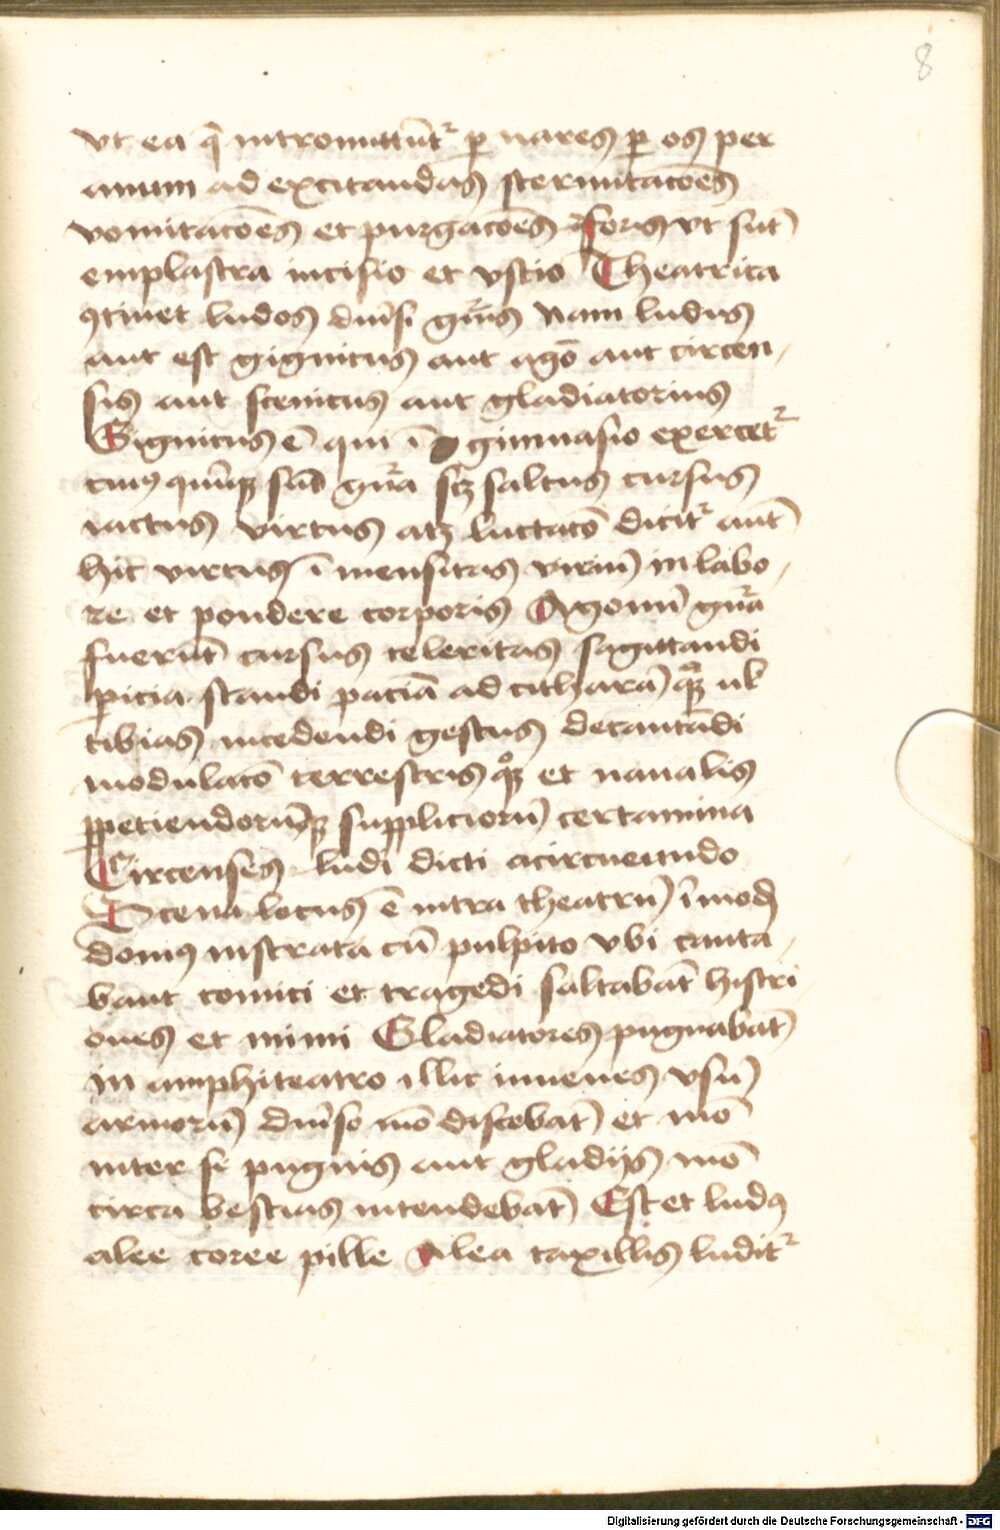 8
vt ea q̄ intromittūtᵣ ꝑ nares ꝑ os per
anum ad excitandas sternutacōes
vomitacōes et purgacōes foris vt sūt
emplastra incisio et vstio Theatrica
ꝯtinet ludos diu̾si gn̄is Nam ludus
aut est gignicus aut agō aut circen
sis aut scenicus aut gladiatorius
Gignicus ē qui ī gimnasio exercetᵣ
cuiꝰ quīqꝫ sūt gn̄a scꝫ saltus cursus
iactus virtus atqꝫ luctatō dicitᵣ aūt
hic virtus īmensitas viriū in labo
re et pondere corporis Agonū gn̄a
fuerūt cursus celeritas sagittandi
ꝑicia standi paciā ad citharā qͦꝫ ul
tibias incedendi gestus decantādi
modulatō terrestris qͦꝫ et naualis
ꝑpetiendorūqꝫ suppliciorū certamina
Circenses ludi dicti acircueundo
Scena locus ē intra theatrū ī modū
domꝰ instrata cū pulpito vbi canta
bant comici et tragedi saltabāt histri
ones et mimi Gladiatores pugnabāt
in amphiteatro illic iuuenes vsū
armorū diu̾so mō discebāt et mō
inter se pugnis aut gladijs mō
circa bestias intendebāt Est et ludꝰ
alee coree pille Alea taxillis luditᵣ
Digitalisierung gefördert durch die Deutsche Forschungsgemeinschaft - DFG